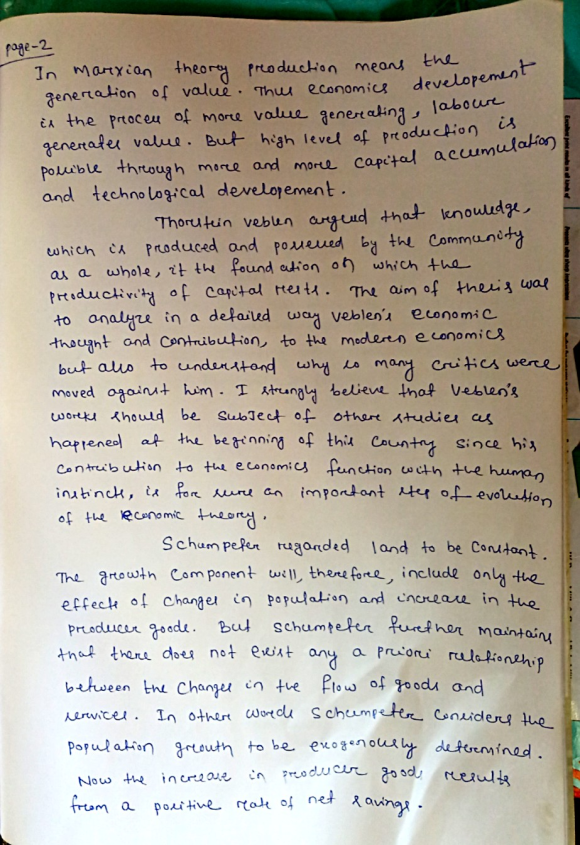 page-2
In Marxian theory production means the
generation of value. Thus economics developement
is the process of more value generating, labour
generates value. But high level of production is
possible through more and more capital accumulation
and technological developement.
Thorstein veblen argued that knowledge,
which is produced and possessed by the community
as a whole, it the foundation on which the
productivity of capital rests. The aim of thesis was
to analyze in a detailed way veblen's economic
thought and contribution, to the modern economics
but also to understand why so many critics were
moved against him. I strongly believe that Veblen's
works should be subject of other studies as
happened at the beginning of this country since his
contribution to the economics function with the human
instincts, is for sure an important step of evolution
of the economic theory.
Schumpeter regarded land to be constant.
The growth component will, therefore, include only the
effects of changes in population and increase in the
producer goods. But schumpeter further maintains
that there does not exist any a priori relationship
between the changes in the flow of goods and
services. In other words schumpeter considers the
population growth to be exogenously determined.
Now the increase in producer goods results
from a positive rate of net savings.